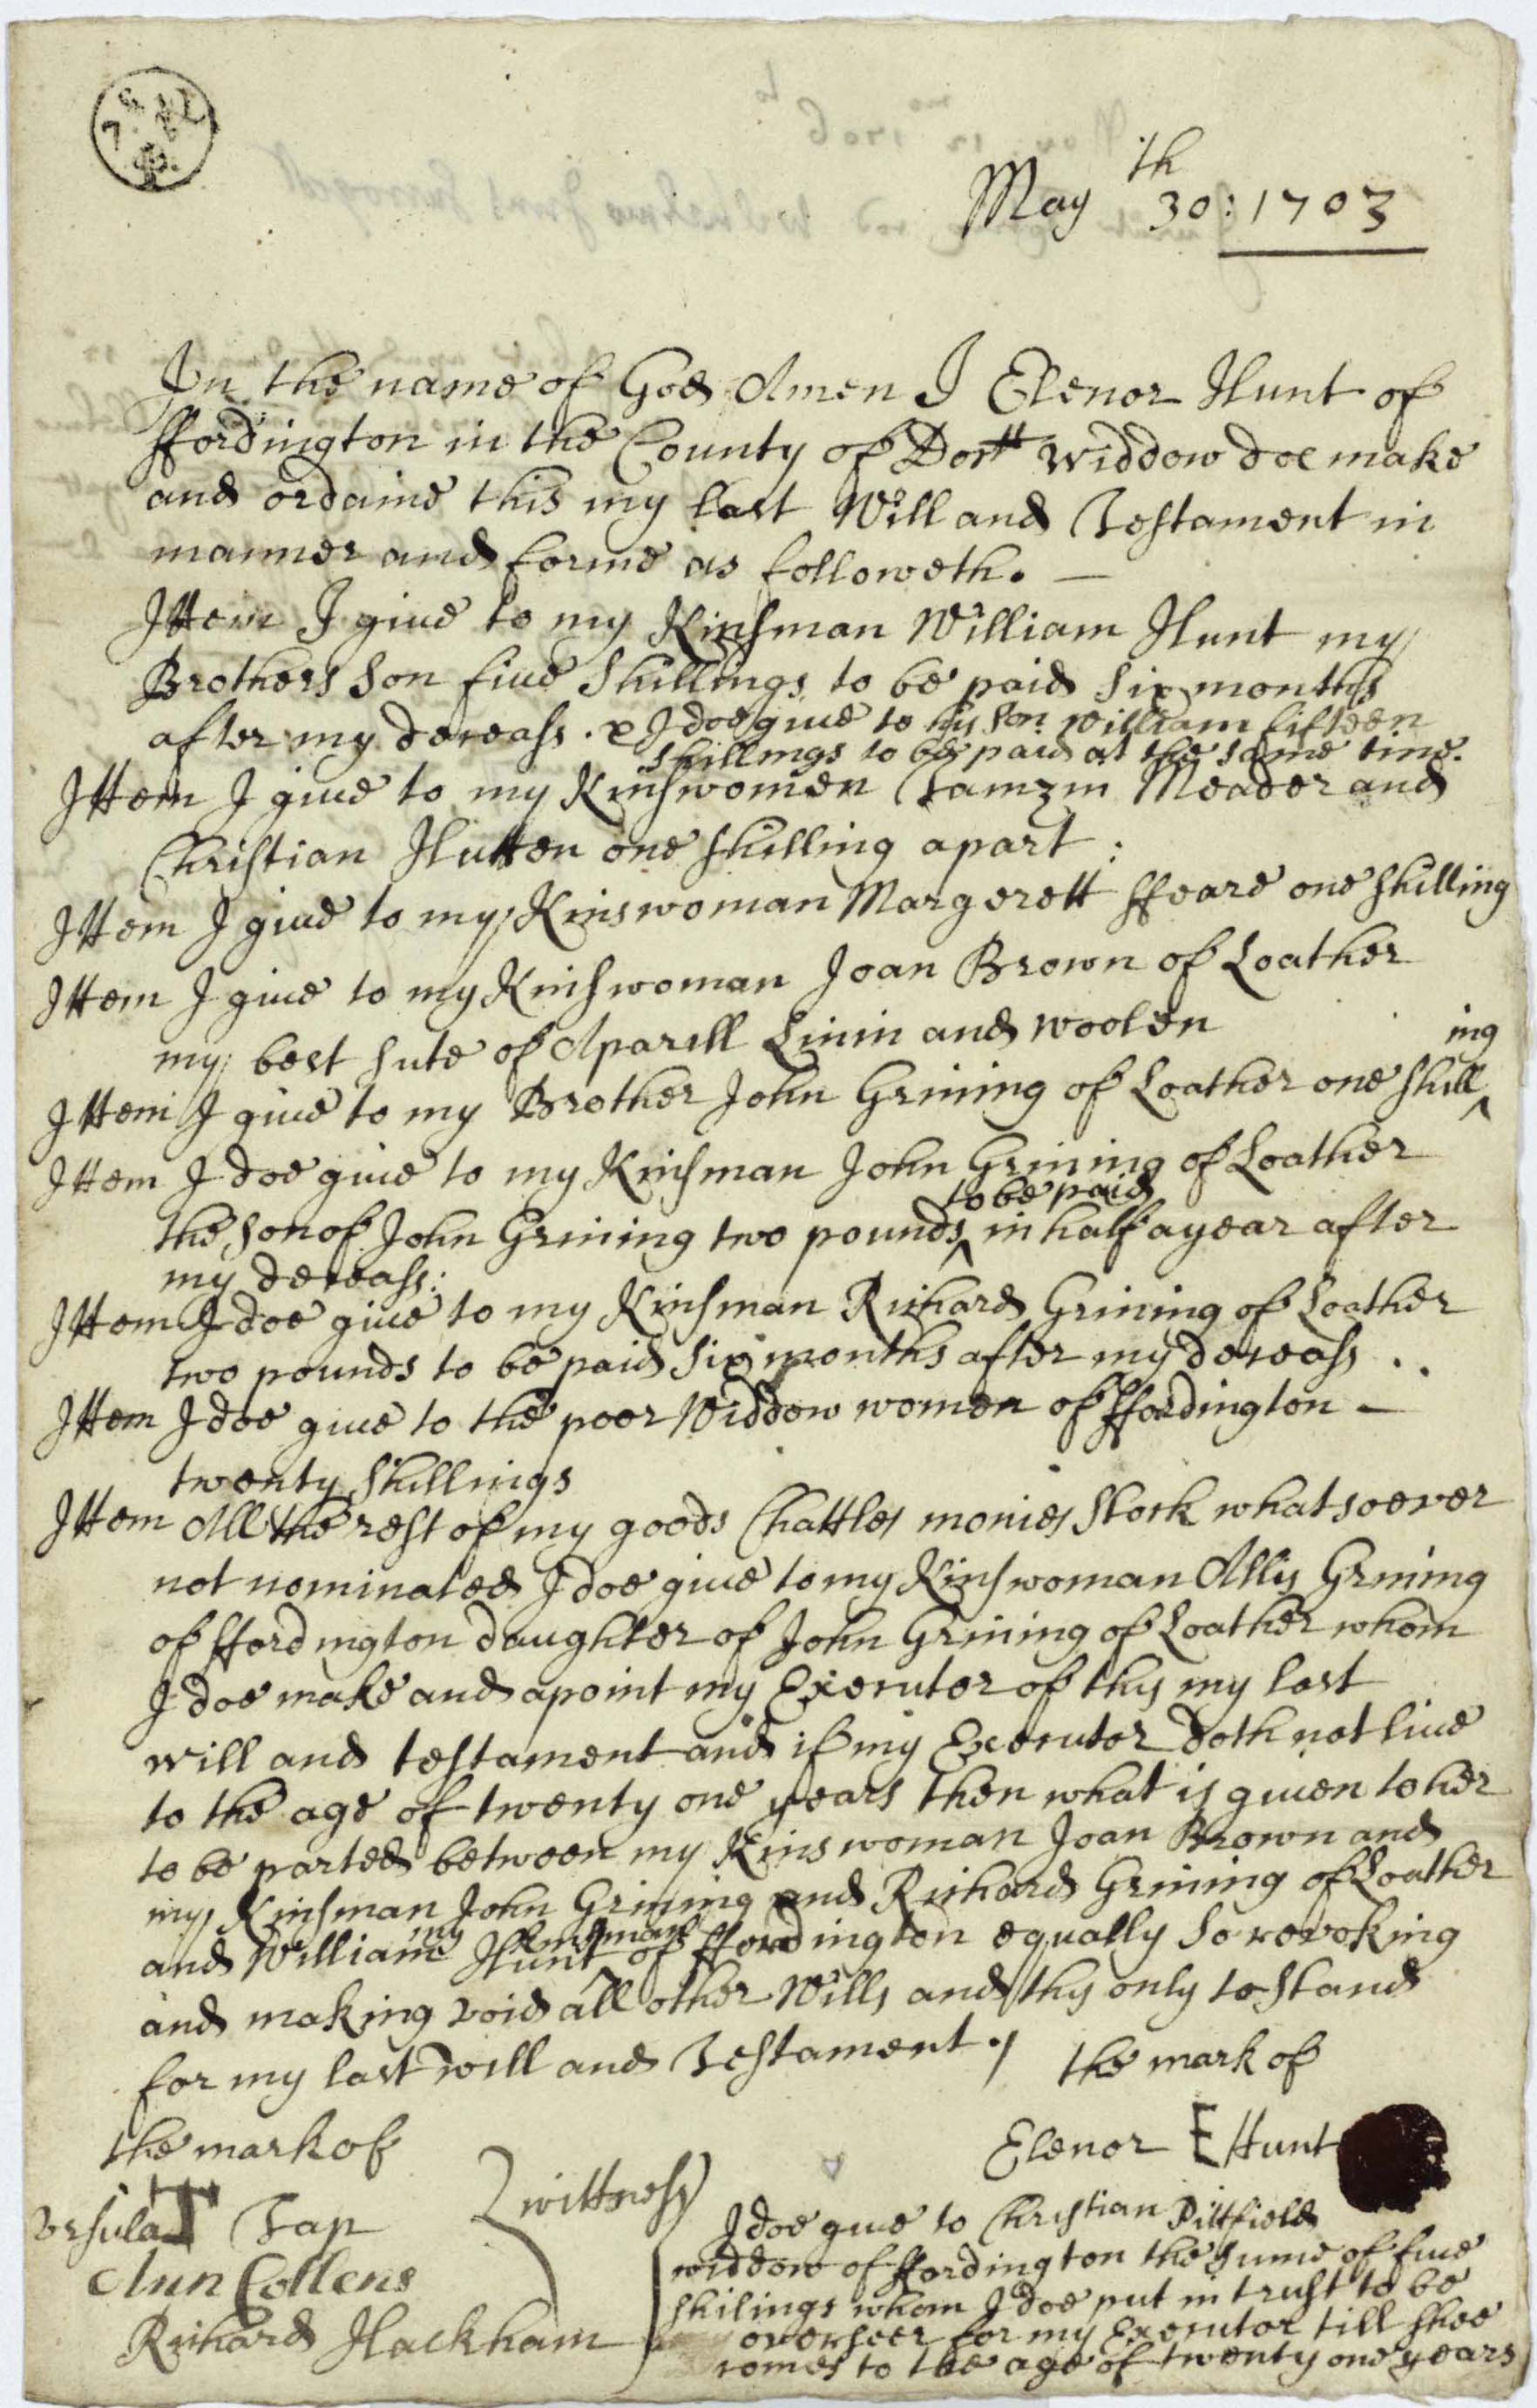 May 30th: 1703
In the name of God Amen I Elenor Hunt of
ffordington in the County of Dorstt widdow doe make
and ordaine this my last Will and Testament in
manner and forme as followeth. —
Ittem I giue to my Kinsman William Hunt my
Brothers Son fiue Shillings to be paid Six months
after my deceass. & I doe giue to his Son William fifteen
shillings to be paid at the same time.
Ittem I giue to my Kinswomen Tamzin Meader and
Christian Hutten one shilling apart :
Ittem I giue to my Kinswoman Margerett ffeare one shilling
Ittem I giue to my Kinswoman Joan Brown of Loather
my best sute of Aparell Linin and woolen
Ittem I giue to my Brother John Grining of Loather one shill^ing
Ittem I doe giue to my Kinsman John Grining of Loather
the Son of John Grining two pounds ^to be paid in half a year after
my deceass:
Ittem I doe giue to my Kinsman Richard Grining of Loather
two pounds to be paid Six months after my deceass ..
Ittem I doe giue to the poor Widdow women of ffordington —
twenty Shillings
Ittem All the rest of my goods Chattles monies Stock whatsoever
not nominated I doe giue to my Kinswoman Allis Grining
of ffordington daughter of John Grining of Loather whom
I doe make and apoint my Executor of this my last
will and testament and if my Executor doth not liue
to the age of twenty one years then what is giuen to her
to be parted between my Kinswoman Joan Brown and
my Kinsman John Grining and Richard Grining of Loather
and William Hunt ^my Kinsman of ffordington equally So revoking
and making void all other Wills and this only to Stand
for my last will and Testament ./
the mark of
Elenor E Hunt
the mark of
Vrsula T Tap
Ann Collens
Richard Hackham
wittness
I doe giue to Christian Pittfield
widdow of ffordington the Sume of fiue
shilings whom I doe put in trust to be
overseer for my Executor till shee
comes to the age of twenty one years